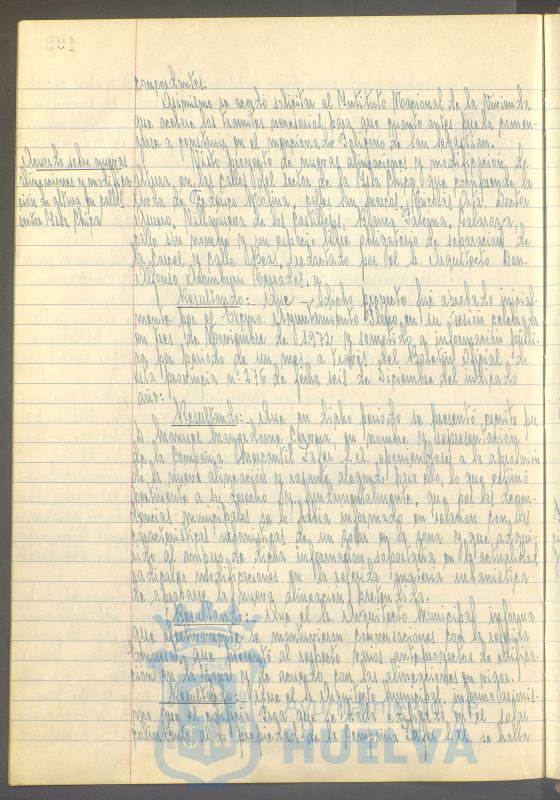 correspondientes.
Asimismo se acordó solicitar al Instituto Nacional de la Vivienda
que acelere los tramites necesarios para que cuanto antes pueda comen-
zarse a construir en el mencionado Poligono de San Sebastian.
Acuerdo sobre nuevas
alineaciones y modifica-
ción de altura en calles
sector Isla Chica
Visto proyecto de nuevas alineaciones y modificación de
altura, en las calles del sector de la Isla Chica que comprende la
Avda de Federico Molina, calles San Marcos, Nicolás Orta, Doctor
Rubio, Villanueva de los Castillejos, Blanca Paloma, Galaroza,
calle sin nombre y un espacio libre obligatorio de separación de
la Carcel y calle Beas, redactado por el Sr. Arquitecto Don
Alfonso Aramburu Terrades, y
Resultando: Que dicho proyecto fué aprobado inicial-
mente por el Excmo. Ayuntamiento Pleno, en su sesión celebrada
en tres de Noviembre de 1972 y sometido a información públi-
ca por periodo de un mes, a través del Boletín Oficial de
esta provincia nº 276 de fecha seis de Diciembre del indicado
año:
Resultando: Que en dicho periodo se presentó escrito por
D. Manuel Mayordomo en nombre y representación
de la Compañia Mercantil S.A. oponiendose a la aprobación
de la nueva alineación y rasante, alegando para ello, lo que estimó
pertinente a su derecho y, fundamentalmente, que por las depen-
dencias municipales se le habia informado en relación con las
caracteristicas urbanisticas de un solar en la zona y que adqui-
rido al amparo de dicha información soportaria en la actualidad,
radicales modificaciones en la referida materia urbanistica
de aprobarse la nueva alineación pretendida.
Resultando: Que el Sr. Arquitecto Municipal informa
que efectivamente se mantuvieron conversaciones con la referida
Empresa, que presentó al respecto varios anteproyectos de edifica-
ción en la zona y de acuerdo con las alineaciones en vigor.
Resultando: Que el Sr. Arquitecto Municipal informa asimis-
mo que el edificio que se halla situado en el solar
colindante al de propiedad de la Compañia S.A. se halla
Ayuntamiento de
HUELVA